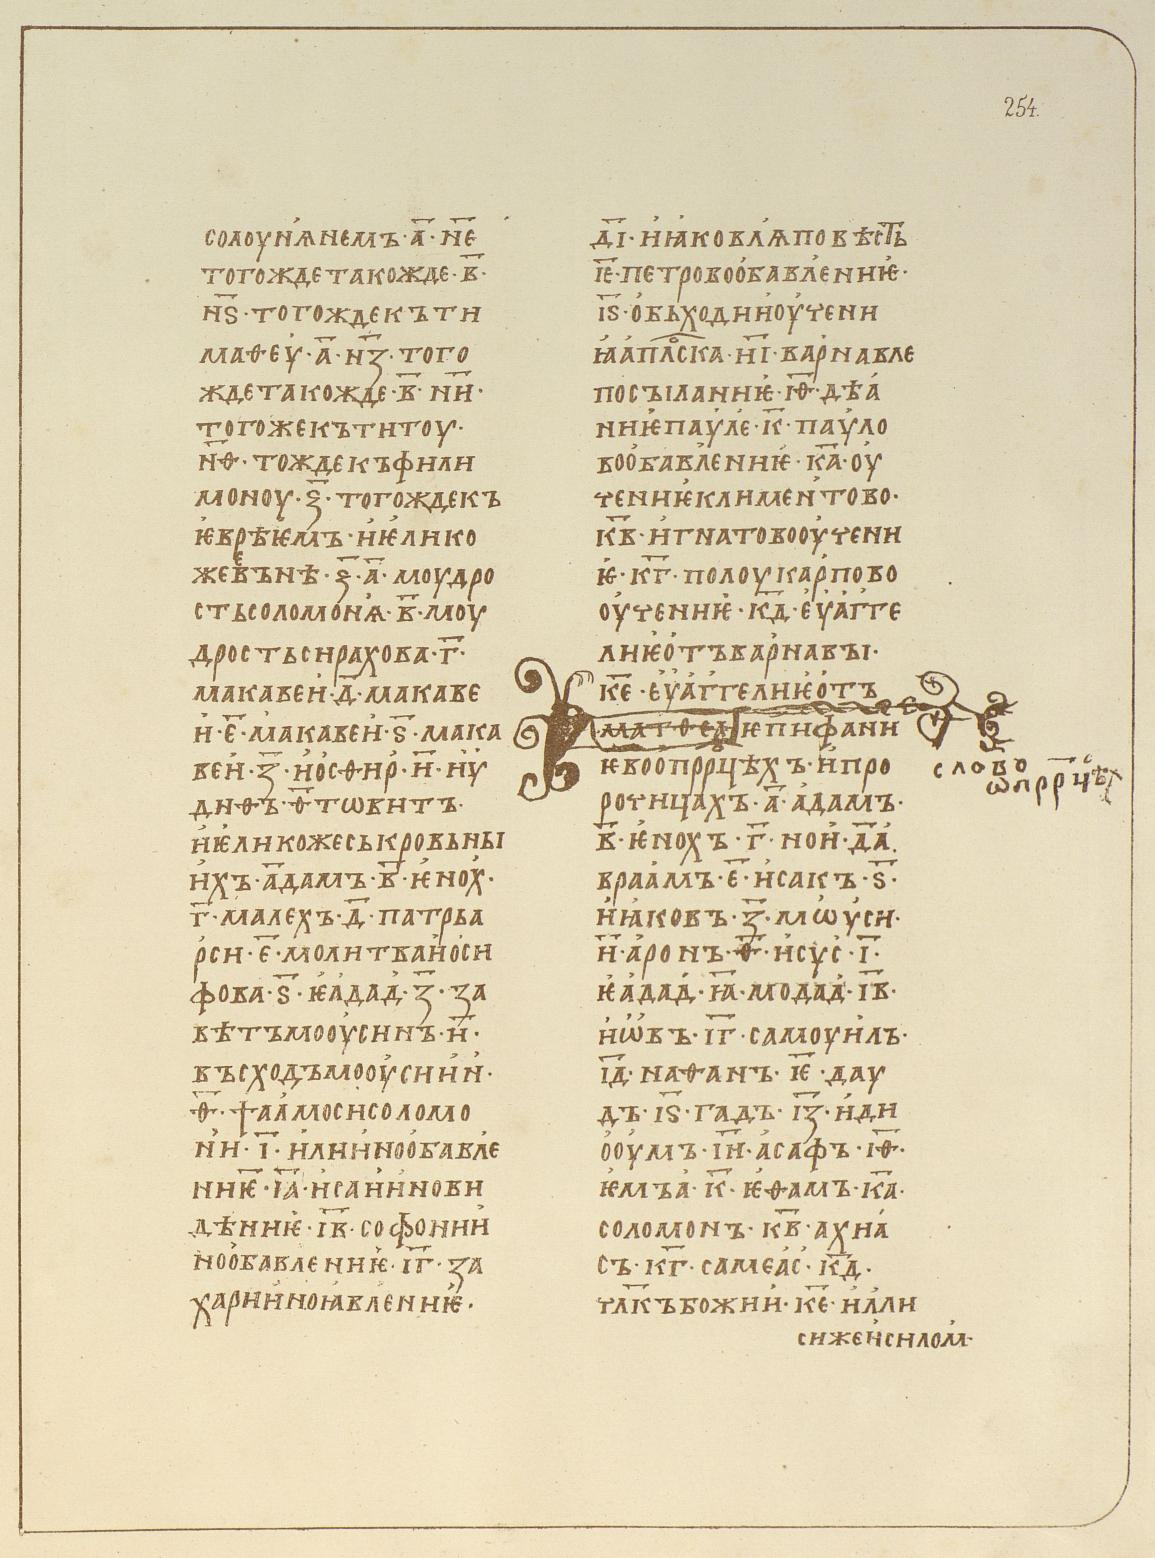 254.
солоунѧнемъ·а҃·н҃е
тогождетакожде·в҃·
н҃ѕ·тогождекъти
маѳеу·а҃·н҃ꙁ·того
ждетакожде·в҃·н҃и·
тогожекътитоу·
н҃ѳ·тождекъфили
моноу·ѯ҃·тогождекъ
ѥврѣѥмъ·иѥлико
жевънѣ·ѯ҃·а҃·моудро
стьсоломонѧ·в҃·моу
дростьсирахова·г҃·
макавеи·д҃·макаве
и·е҃·макавеи·ѕ҃·мака
веи·ꙁ҃·иосѳир·и҃·иу
диѳъ·ѳ҃·тѡвитъ·
иѥликожеськровьны
ихъ·а҃дамъ·в҃·ѥнох·
г҃·малехъ·д҃·патрьа
рси·е҃·молитваиоси
фова·ѕ҃·ѥадад·ꙁ҃·ꙁа
вѣтъмооусинъ·и҃·
въсходъмооусиин·
ѳ҃·ѱалмосисоломо
ни·і҃·илиинообавле
ниѥ·і҃а·исаиинови
дѣниѥ·і҃в·софонии
нообавлениѥ·і҃г·ꙁа
харииноꙗвлениѥ·
д҃і·иꙗковлѧповѣсть
і҃е·петровообавлениѥ·
і҃ѕ·обьходииоучени
ꙗап҃лска·и҃і·варнавле
посъıланиѥ·і҃ѳ·дѣа
ниѥпауле·к҃·пауло
вообавлениѥ·к҃а·оу
чениѥклиментово·
к҃в·игнатовооучени
ѥ·к҃г·полоукарпово
оучениѥ·к҃д·еуагге
лиѥотъварнавъı·
к҃е·еуаггелиѥотъ
матѳеаѥпифани
ѥвоопррцѣхъ·ипро
рочицахъ·а҃·адамъ·
в҃·ѥнохъ·г҃·нои·д҃а
враамъ·е҃·исакъ·ѕ҃·
иꙗковъ·ꙁ҃·мѡуси·
и҃·аронъ·ѳ҃·исус·і҃·
ѥадад·і҃а·модад·і҃в·
иѡвъ·і҃г·самоуилъ·
і҃д·наѳанъ·і҃е·дау
дъ·і҃ѕ·гадъ·і҃ꙁ·иди
ооумъ·і҃и·асафъ·і҃ѳ·
ѥмъа·к҃·ѥѳамъ·к҃а·
соломонъ·к҃в·ахиа
съ·к҃г·самеас·к҃д·
чл҃къбожии·к҃е·илли
сижеисилом·
слово
ѡпррч҃ѣх